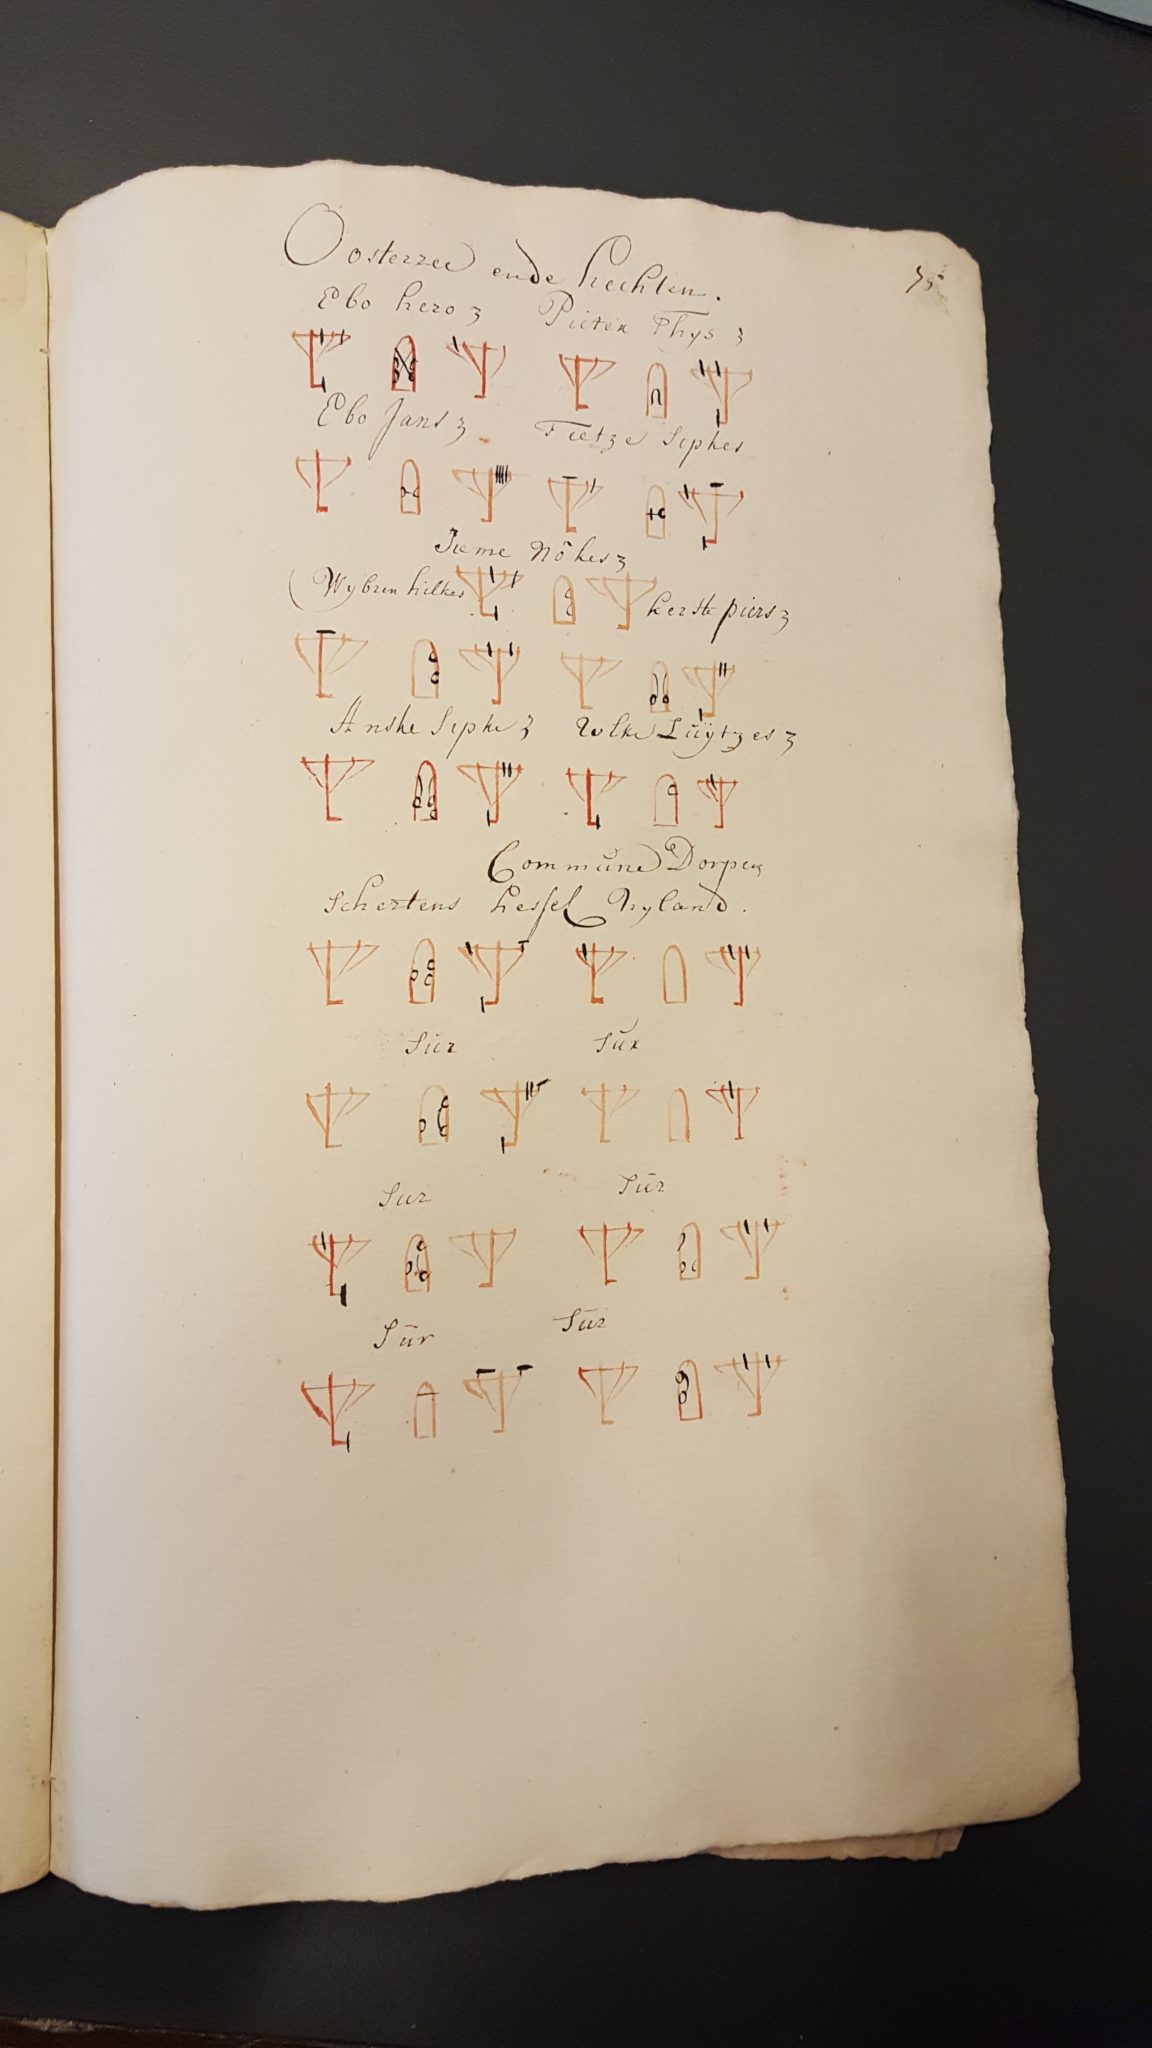 75
Oosterzee ende hechten.
Ebo hero z Pieter Thys z
Ebo Jans z Tietze Sipkes
Jieme Nôkes z
Wybren hilkes kerste piers z
Anske Sipke z wlke Lŭÿtzes z
Commŭne Dorpen
Schertens hessel Nyland.
Sŭr Sŭr
Sur Sūr
Sūr Sūr